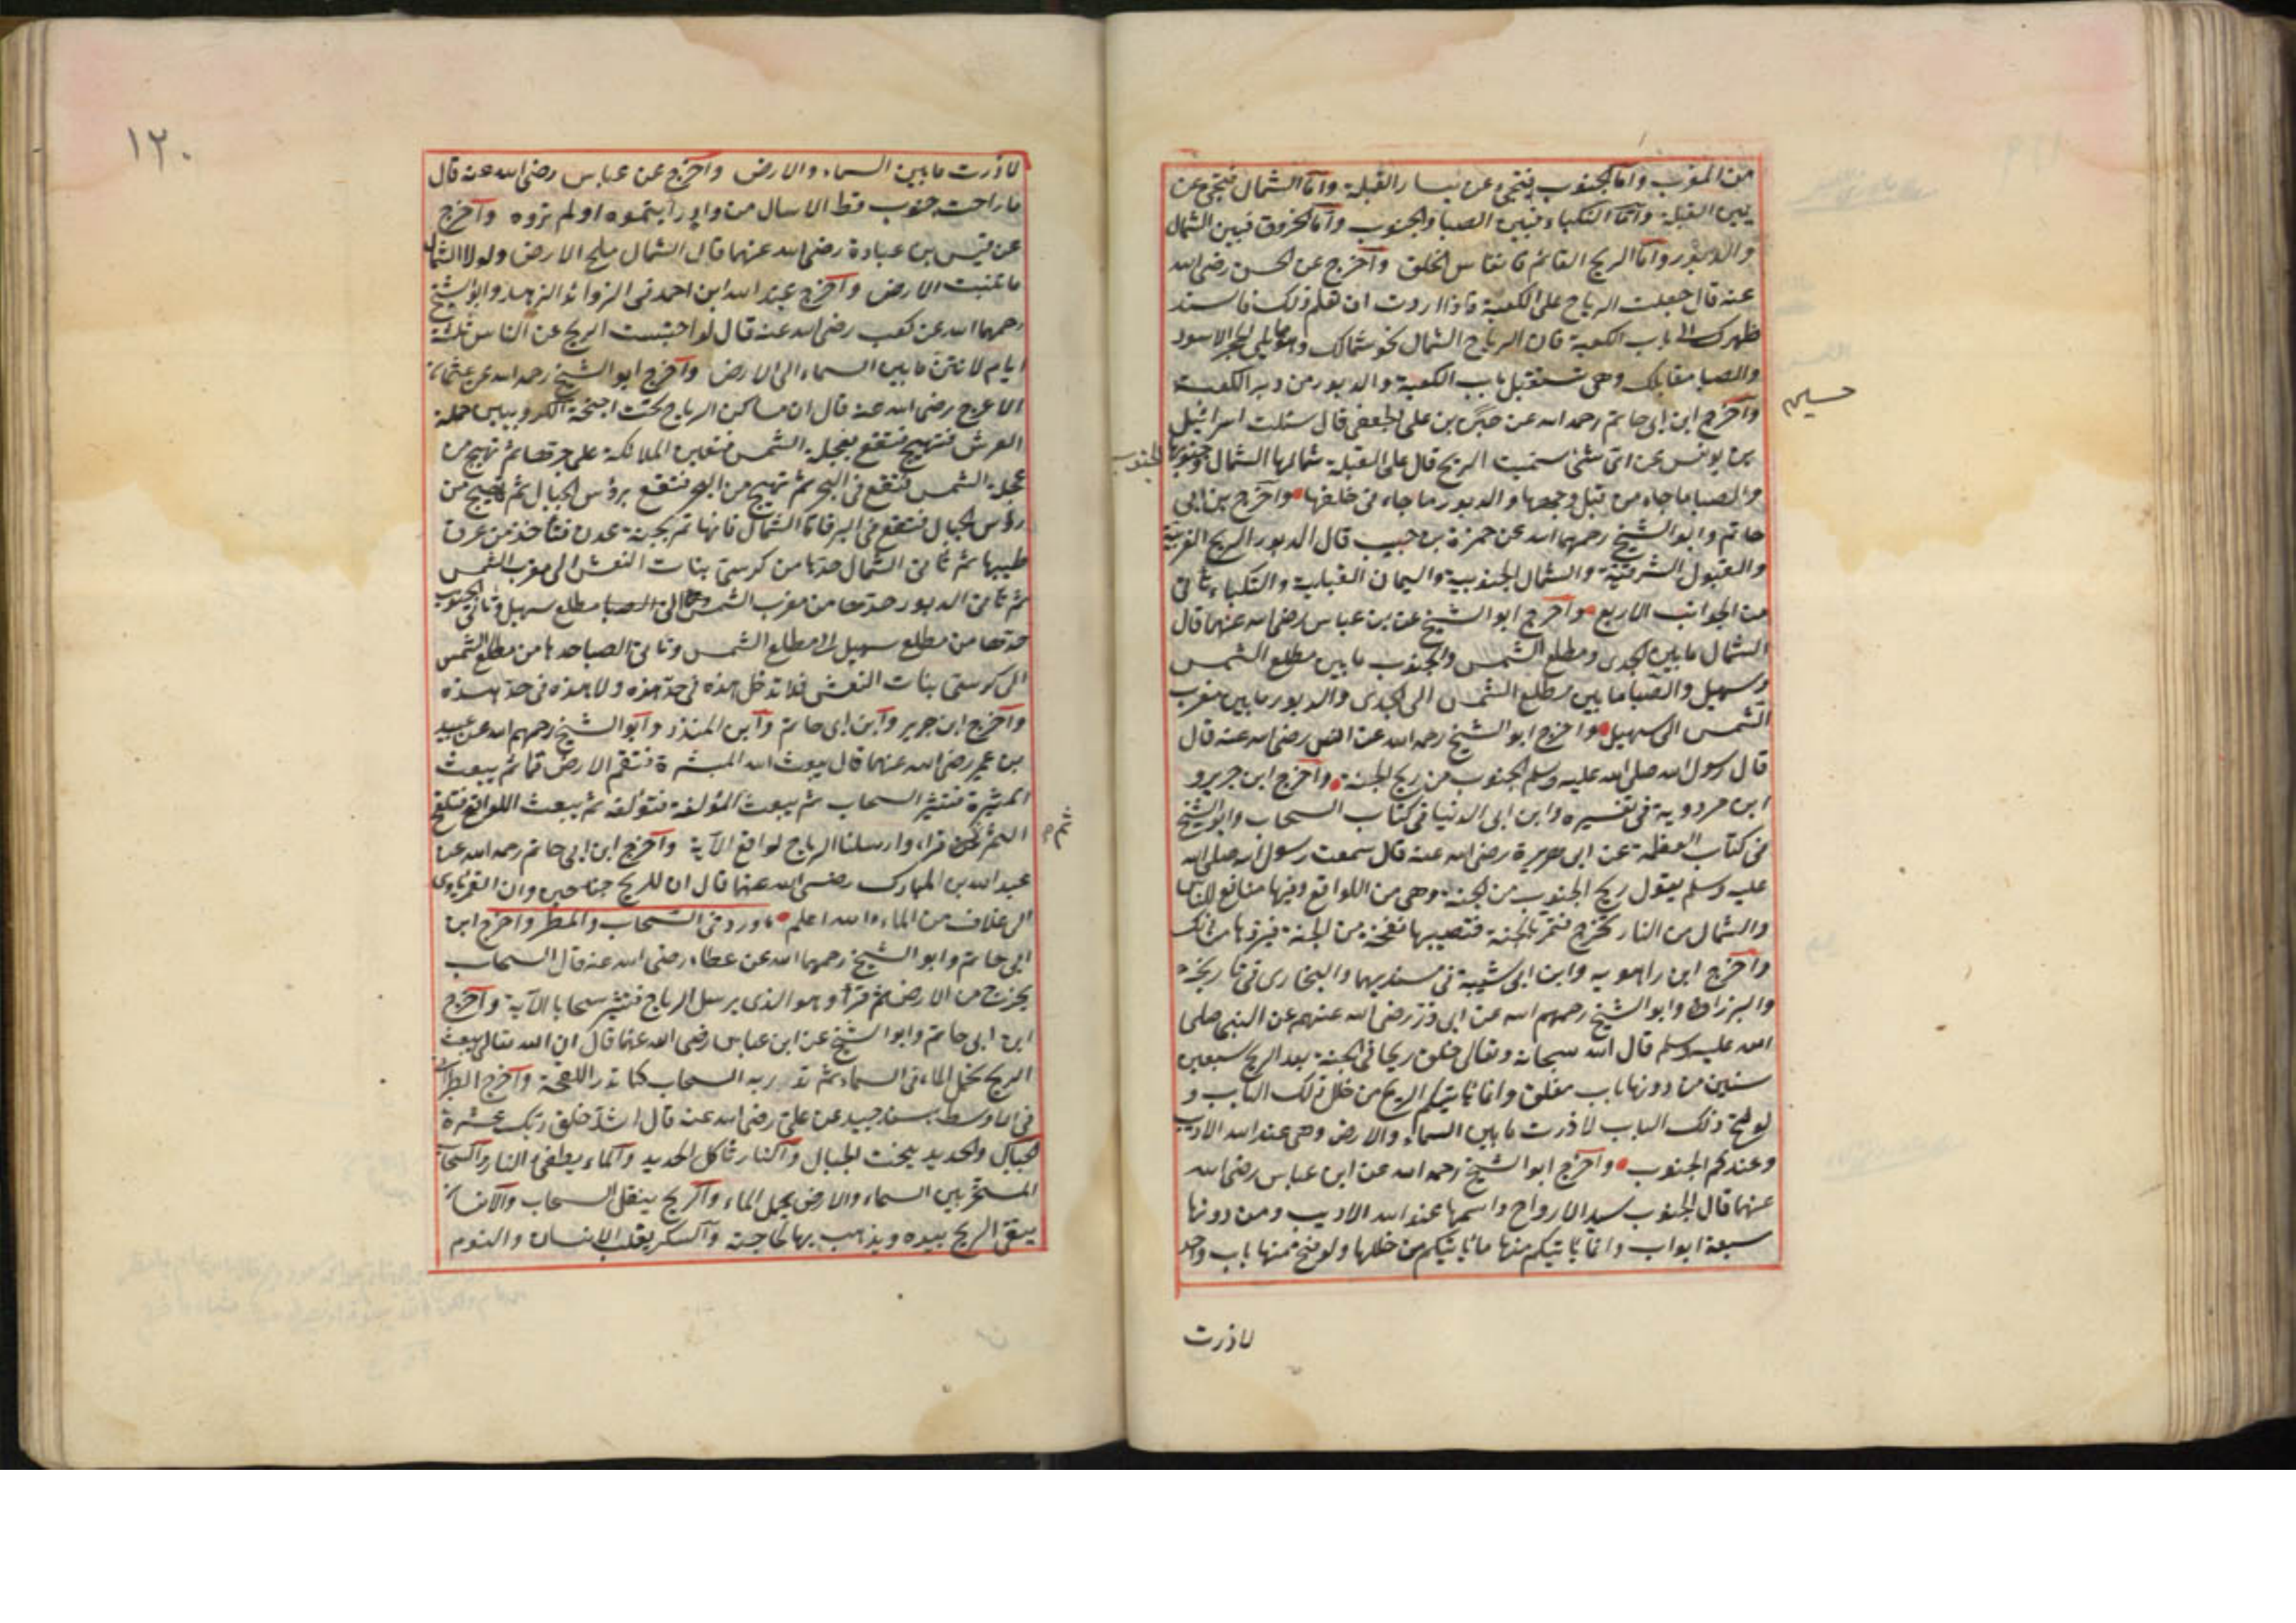 من المغرب وأما الجنوب فتجئ عن يسار القبلة وأما الشمال فتجئ عن
يمين القبلة وأما النكباء فبين الصبا والجنوب وأما الخروق فبين الشمال
والدبور وأما الريح القائم فأنفاس الخلق وآخرج عن الحسن رضى الله
عنه قال جعلت الرياح على الكعبة فاذا اردت ان تعلم ذلك فاسند
ظهرك الى باب الكعبة فان الرياح الشمال نحو شمالك وهو مايلي الحجر الاسود
والصبا مقابلك وهى تستقبل باب الكعبة والدبور من دبر الكعبة
حسين
وآخرج ابن ابى حاتم رحمه الله عن بن على الجعفى قال سئلت اسرائيل
بن يونس عن اى شئ سميت الريح قال على القبلة شمالها الشمال وجنوبها
الجنوب
والصبا ماجاء من قبل وجهها والدبور ماجاء من خلفها وآخرج بن ابى
حاتم وابو الشيخ رحمهما الله عن حمزة بن حبيب قال الدبور الريح الغربية
والقبول الشرقية والشمال الجنوبية واليمان القبلية والنكباء تأتى
من الجوانب الاربع وآخرج ابو الشيخ عن بن عباس رضى الله عنهما قال
الشمال مابين الجدى ومطلع الشمس والجنوب مابين مطلع الشمس
وسهيل والصبا مابين مطلع الشمس الى الجدى والدبور مابين مغرب
الشمس الى سهيل واخرج ابو الشيخ رحمه الله عن انس رضى الله عنه قال
قال رسول الله صلى الله عليه وسلم الجنوب من ريح الجنة وآخرج ابن جرير و
ابن مردوية فى تفسيره وابن ابى الدنيا فى كتاب السحاب وابو الشيخ
فى كتاب العظمة عن ابى هريرة رضى الله عنه قال سمعت رسول الله صلى الله
عليه وسلم يقول ريح الجنوب من الجنة وهى من اللواقح وفيها منافع للناس
والشمال من النار تخرج فتمر بالجنة فتصيبها نفخة من الجنة فبردها من ذلك
وآخرج ابن راهويه وابن ابى شيبة فى مسنديهما والبخارى فى تاريخه
والبزار وابو الشيخ رحمهم الله عن ابى ذر رضى الله عنهم عن النبى صلى
الله عليه وسلم قال الله سبحانه وتعالى خلق ريحا فى الجنة بعد الريح سبعين
سنين من دونها باب مغلق وانما يأتيكم الريح من خلل ذلك الباب و
لو فتح ذلك الباب لاذرت مابين السماء والارض وهى عند الله الاديب
وعندكم الجنوب وآخرج ابو الشيخ رحمه الله عن ابن عباس رضى الله
عنهما قال الجنوب سيد الارواح واسمها عند الله الاديب ومن دونها
سبعة ابواب وانما يأتيكم منها مايأتيكم من خللها ولو فتح منها باب واحد
لاذرت
١٢٠
لاذرت مابين السماء والارض وآخرج عن عباس رضى الله عنه قال
ماراحت جنوب قط الا سال من واد رأيتموه اولم تروه وآخرج
عن قيس بن عبادة رضى الله عنهما قال الشمال ملح الارض ولولا الشمال
ماتنبت الارض وآخرج عبد الله ابن احمد فى الزوائد الزهد وابو الشيخ
رحمهما الله عن كعب رضى الله عنه قال لو احتبست الريح عن الناس ثلثة
ايام لانتن مابين السماء الى الارض وآخرج ابو الشيخ رحمه الله عن عثمان
الاعرج رضى الله عنه قال ان مساكن الرياح تحت اجنحة الكروبيين حملة
العرش فتهيج فتقع بعجلة الشمس فتعين الملائكة على جرها ثم تهيج من
عجلة الشمس فتقع فى البحر ثم تهيج من البحر فتقع برؤس الجبال ثم تهيج من
رؤس الجبال فتقع فى البر فاما الشمال فانها تمر بجنة عدن فتأخذ من عرف
طيبها ثم تأتى الشمال حدها من كرسى بنات النعش الى مغرب الشمس
ثم تأتى الدبور حدها من مغرب الشمس الى مطلع سهيل وتأتى الجنوب
حدها من مطلع سهيل الى مطلع الشمس وتأتى الصبا حدها من مطلع الشمس
الى كرسى بنات النعش فلا تدخل هذه فى حد هذه ولا هذه فى حد هذه
وآخرج ابن جرير وآبن ابى حاتم وآبن المنذر وآبو الشيخ رحمهم الله عن عبيد
بن عمير رضى الله عنهما قال يبعث الله المبشرة فتقم الارض قما ثم يبعث
المثيرة فتثير السحاب ثم يبعث المؤلفة فتؤلفه ثم يبعث اللواقح فتلقح
ثم
الشجر قراء وارسلنا الرياح لواقح الآية وآخرج ابن ابى حاتم رحمه الله عن
عبد الله بن المبارك رضى الله عنهما قال ان للريح جناحين وان القمر يأوى
الى غلاف من الماء والله اعلم ماورد فى السحاب والمطر واخرج ابن
ابى حاتم وابو الشيخ رحمهما الله عن عطاء رضى الله عنه قال السحاب
يخرج من الارض ثم قرأ وهو الذى يرسل الرياح فتثير سحابا الآية وآخرج
ابن ابى حاتم وابو الشيخ عن ابن عباس رضى الله عنهما قال ان الله تعالى يبعث
الريح تحمل الماء فى السماء ثم تدر به السحاب كما تدر اللقحة وآخرج الطبرانى
فى الاوسط بسند جيد عن على رضى الله عنه قال اشد خلق ربك عشرة
الجبال والحديد ينحت الجبال وآلنار تأكل الحديد وآلماء يطفئ النار وآلسحاب
المسخر بين السماء والارض يحمل الماء وآلريح ينقل السحاب وآلانسان
يتقى الريح بيده ويذهب بها لحاجته وآلسكر يغلب الانسان والنوم